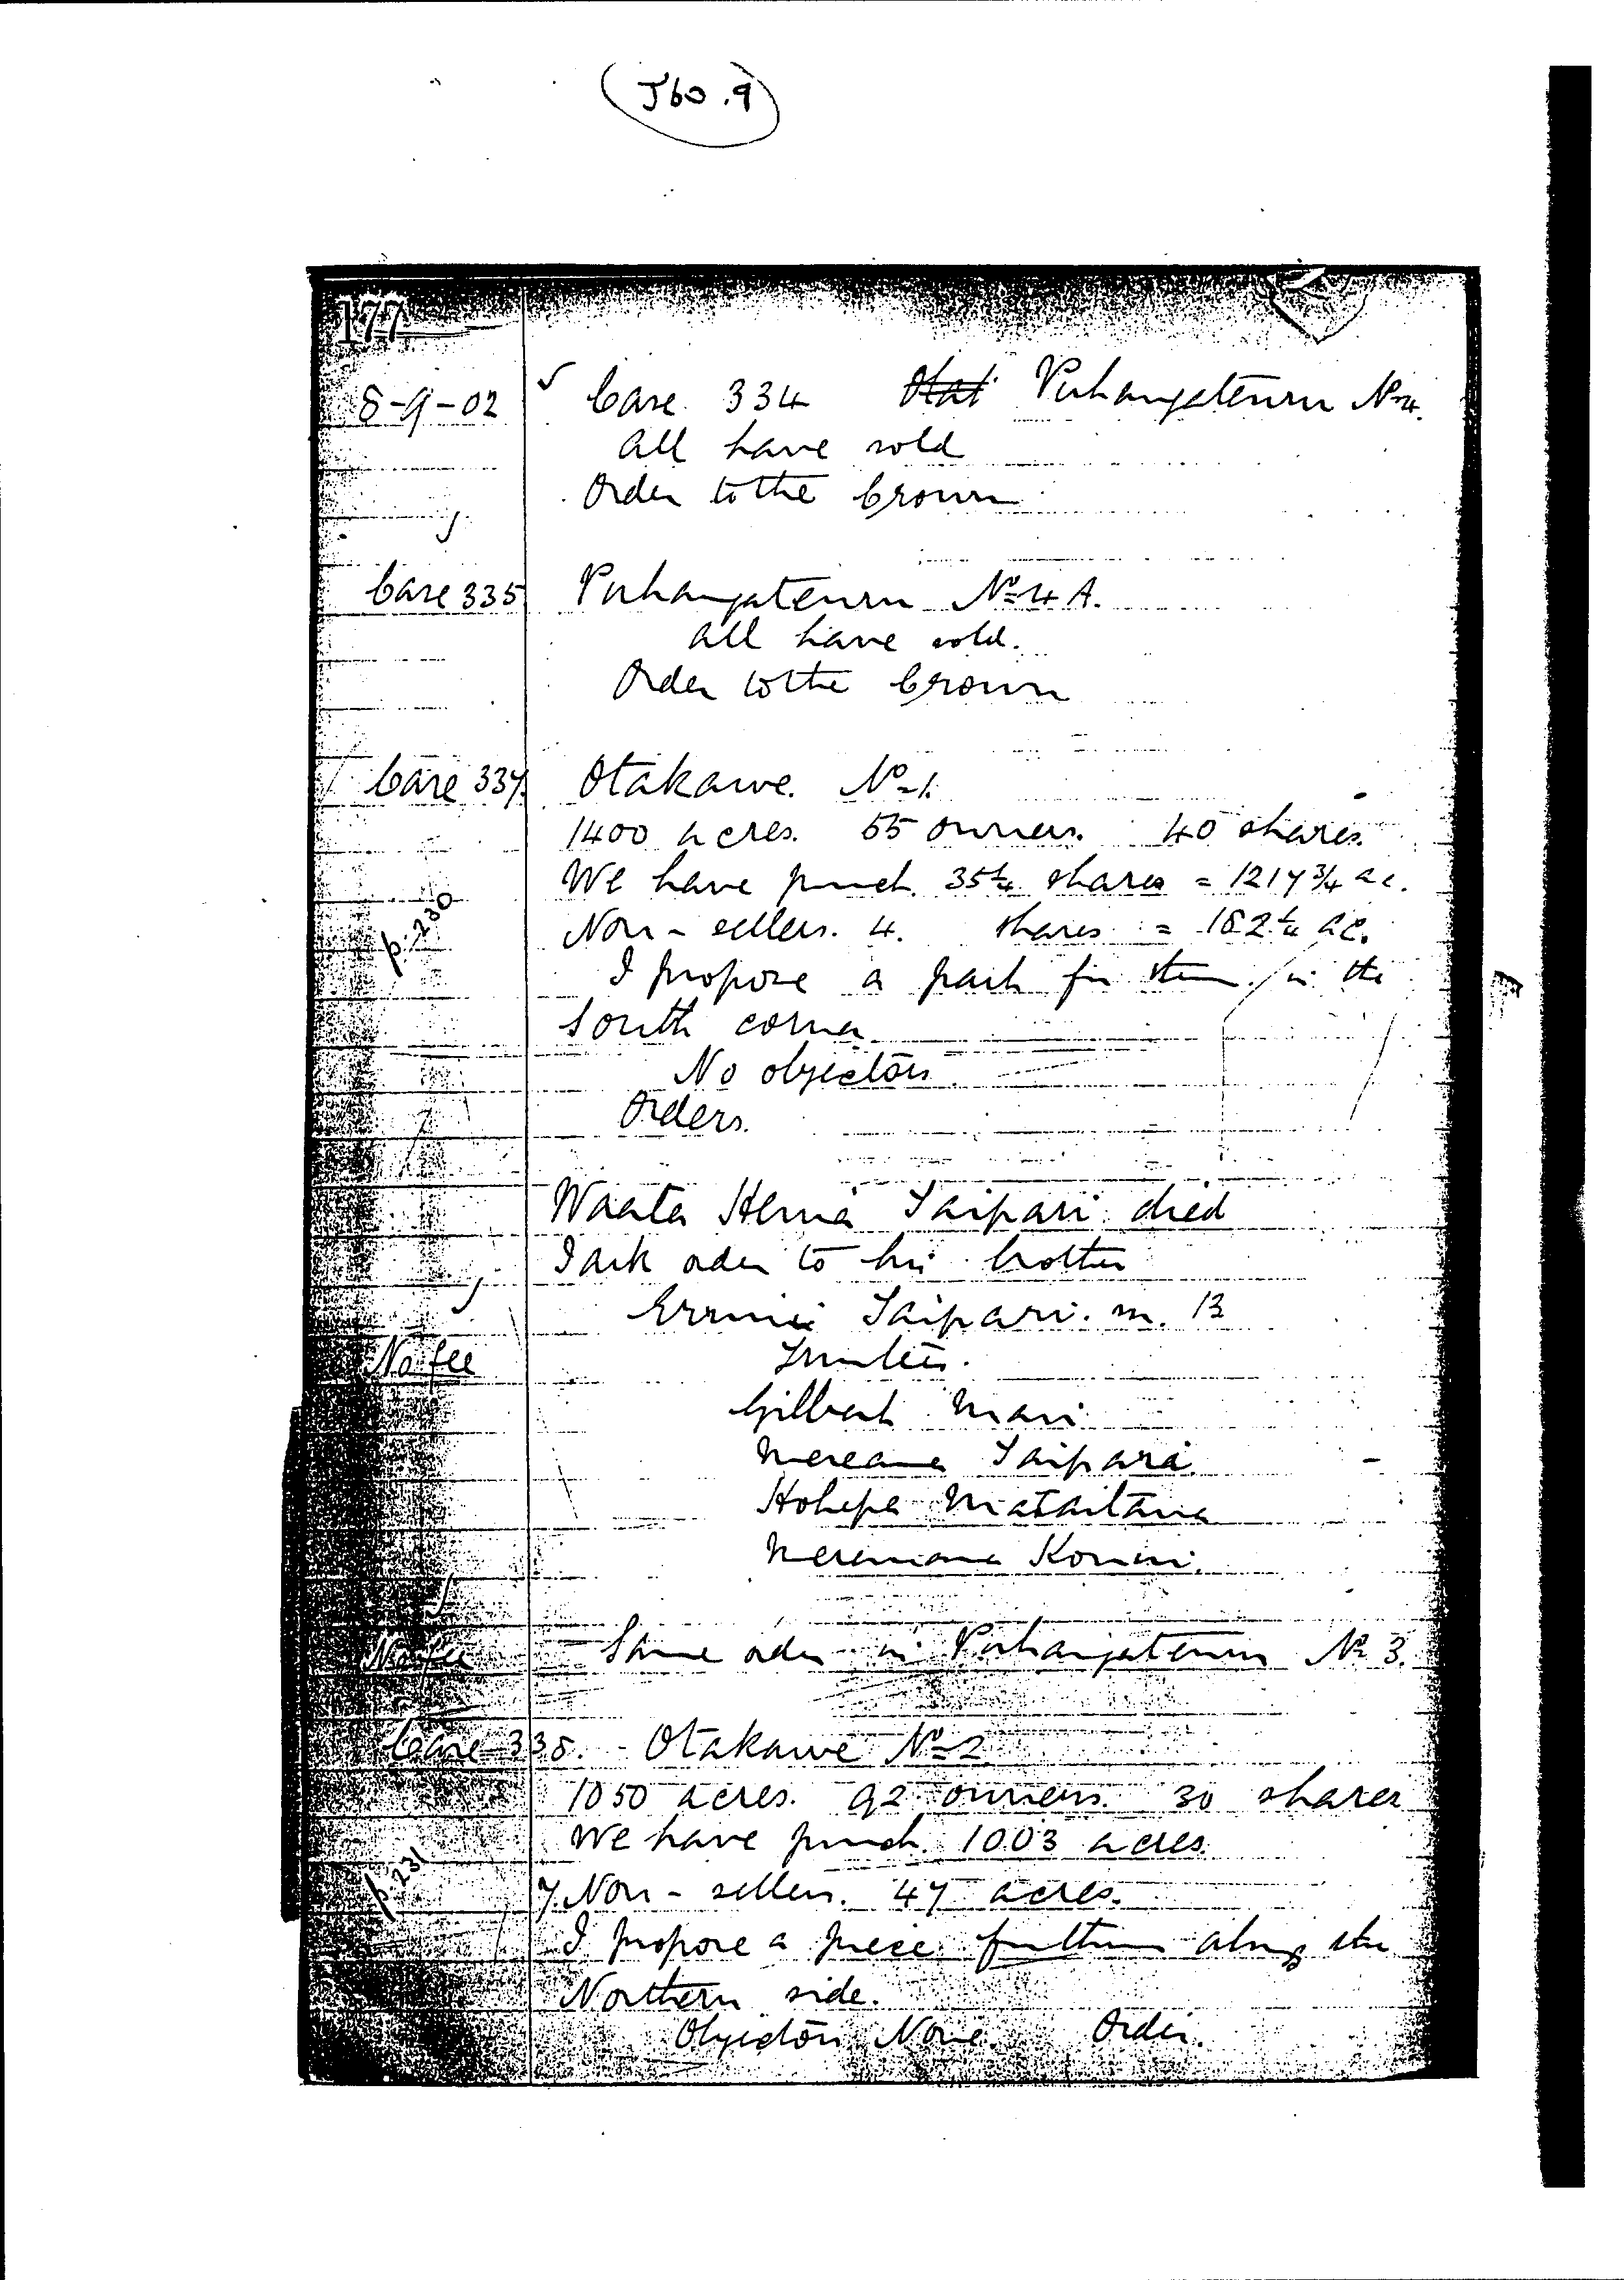 (J60.9)
177
8-9-02 Case 334 Otat Puhangateuru No 4.
All have sold
Order to the Crown
Case 335 Puhangateuru No 4 A.
All have sold.
Order to the Crown
Case 337. Otakawe. No 1.
1400 acres. 55 owners. 40 shares.
We have purch. 35¼ shares = 1217¾ ac.
Non-sellers. 4. shares = 182¼ ac.
p. 230
I propose a part for them in the
South corner
No objectors
Orders.
Waata Hema Taipari died
I ask order to his brother
Taipari. m. 13
No fee
Trustees.
Gilbert Mair
Mereana Taipari
Hohepa Mataitaua
Meremana Konui.
No fee Same order in Puhangateuru No 3.
Case 338. Otakawe No 2
1050 acres. 92 owners. 30 shares
We have purch. 1003 acres.
p. 231
7 Non-sellers. 47 acres.
I propose a piece for them along the
Northern side.
Objectors None. Order.